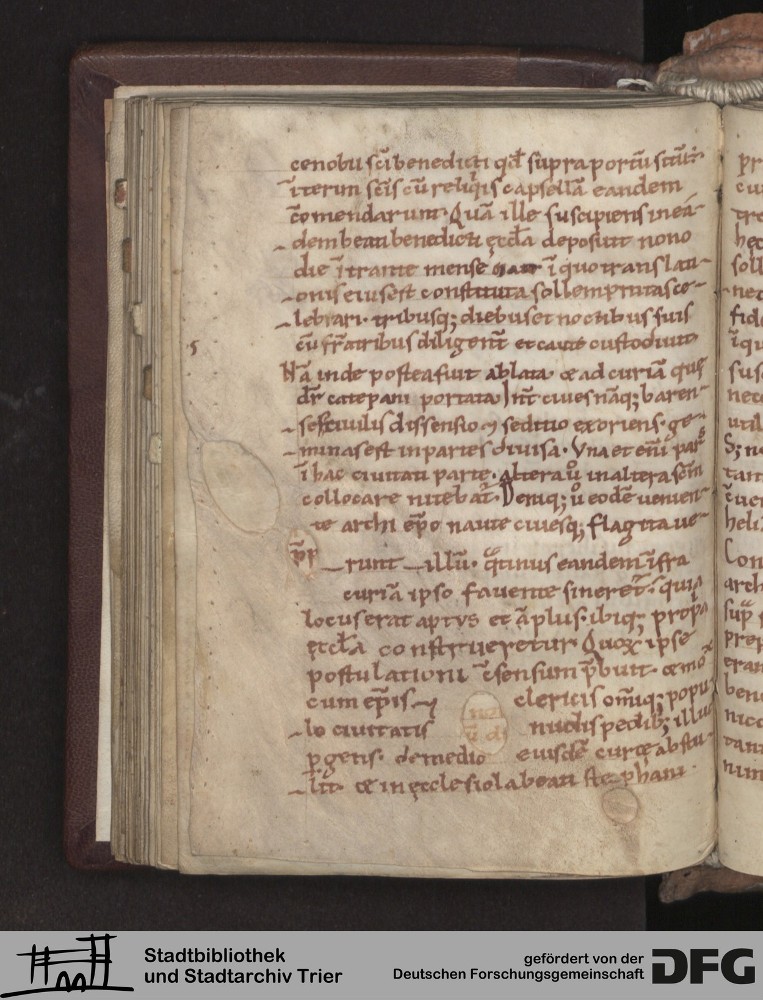 cenobii sc̄i benedicti qd̄ supra portū
īterim scīs cū reliq̇is capsellā eandem
c̄omendarunt. Quā ille suscipiens in eā
dem beati benedicti ęccl̄a deposuit nono
die ītrante mense ī quo translati
onis eius est constituta sollempnitas ce
lebrari. tribusq; diebus et noctibus suis
cū fr̄atribus diligent̄ et caute custodiuit
Nā inde postea fuit ablata. & ad curiā quę
dr̄ catepani portata. Int̄ ciues nāq; baren
ses ciuilis dissensio ⁊ seditio exoriens. ge
minas est in partes diuisa. Vna et eni
ī hac ciuitati parte. altera ů in altera
collocare nitebat̄. Deniq; ů eodē uenien
te archi ep̄o naute ciuesq; flagitaue
runt illū. q̊tinus eandem īfra
curiā ipso fauente sineret. quia
locus erat aptus et āplus. ibiq; prop̄a
ęccl̄a construeretur. Quoꝝ ipse
postulationi c̄sensum p̄buit. & mo
cum ep̄is ⁊ clericis om̄iq; popu
lo ciuitatis nudis pedib; illuc
ꝑgens. de medio eiusdē curtę abstu
lit. & in ęcclesiola beati stephani
pr
cu
tre
hec
soll
nec
fide
īqu
sus
nec
util
S; n
tam
c̄uer
heli
Con
arch
sup
prep
eran
bene
nico
tam
num
Stadtbibliothek
und Stadtarchiv Trier
gefördert von der
Deutschen Forschungsgemeinschaft
DFG